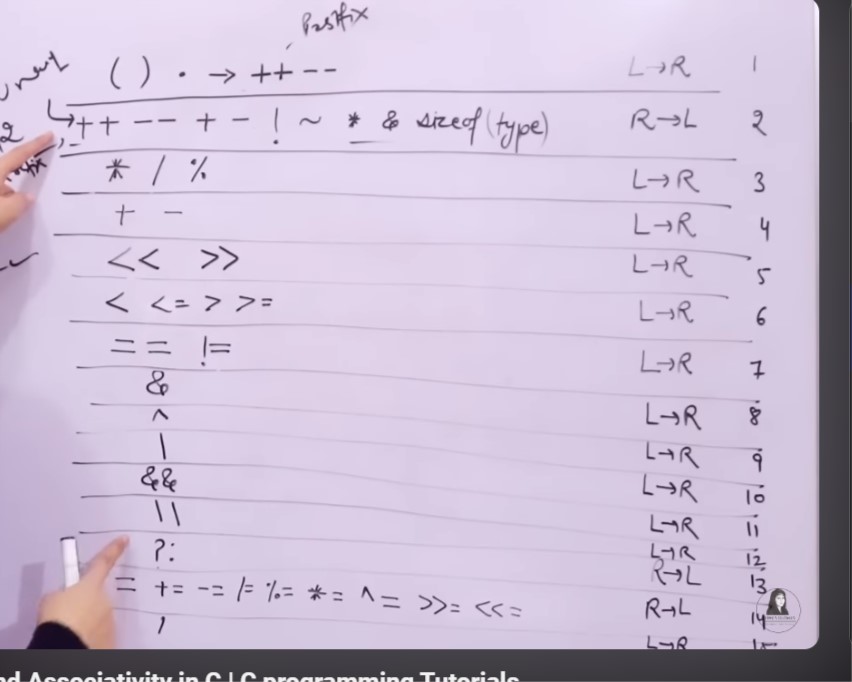 Postfix
( ) . → ++ -- L→R 1
↳ ++ -- + - ! ~ * & sizeof (type) R→L 2
* / % L→R 3
+ - L→R 4
<< >> L→R 5
< <= > >= L→R 6
== != L→R 7
& L→R 8
^ L→R 9
| L→R 10
&& L→R 11
\\ L→R 12
?: R→L 13
= += -= /= %= *= ^= >>= <<= R→L 14
, L→R 15
nd Associativity in C | C programming Tutorials